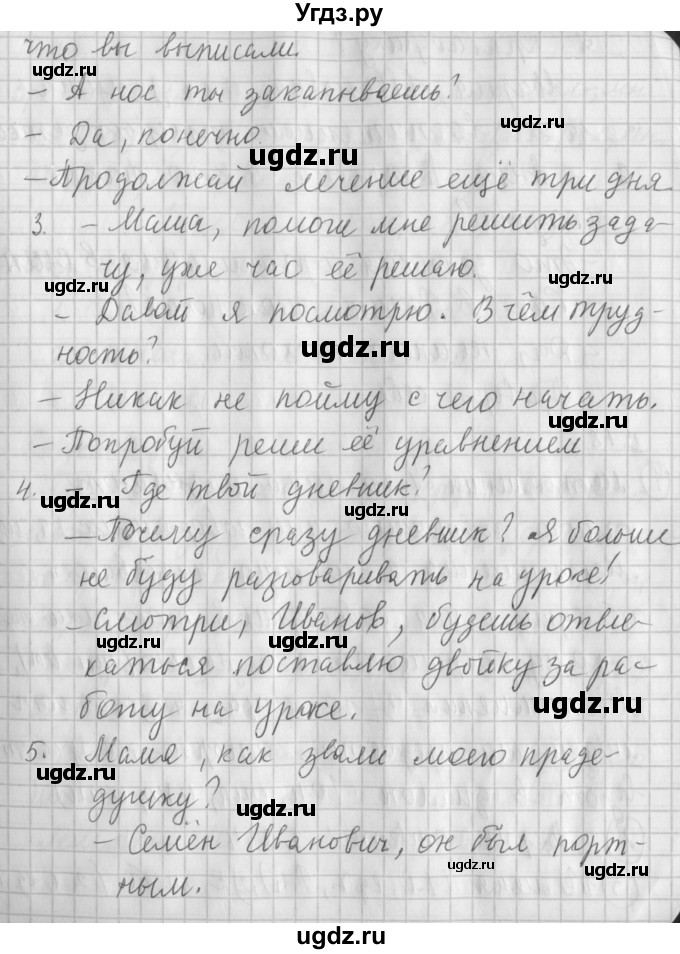 Угдз.ру
что вы выписали.
ugdz.ru
– А нос ты закапываешь?
ugdz.ru
– Да, конечно.
ugdz.ru
– Продолжай лечение ещё три дня
ugdz.ru
3. – Мама, помоги мне решить зада-
чу, уже час её решаю.
ugdz.ru ugdz.ru
– Давай я посмотрю. В чём труд-
ность?
ugdz.ru
– Никак не пойму с чего начать.
ugdz.ru ugdz.ru
– Попробуй реши её уравнением
4. – Где твой дневник?
ugdz.ru ugdz.ru
– Почему сразу дневник? Я больше
не буду разговаривать на уроке!
ugdz.ru
– Смотри, Иванов, будешь отвле-
ugdz.ru ugdz.ru
каться поставлю двойку за ра-
боту на уроке.
ugdz.ru
5. Мама, как звали моего праде-
ugdz.ru
душку?
ugdz.ru
– Семён Иванович, он был порт-
ugdz.ru ugdz.ru
ным.
ugdz.ru